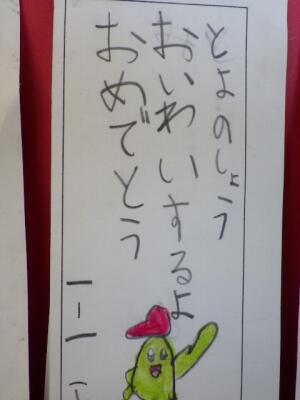 とよのしょう
おいわいするよ
おめでとう
一ー一